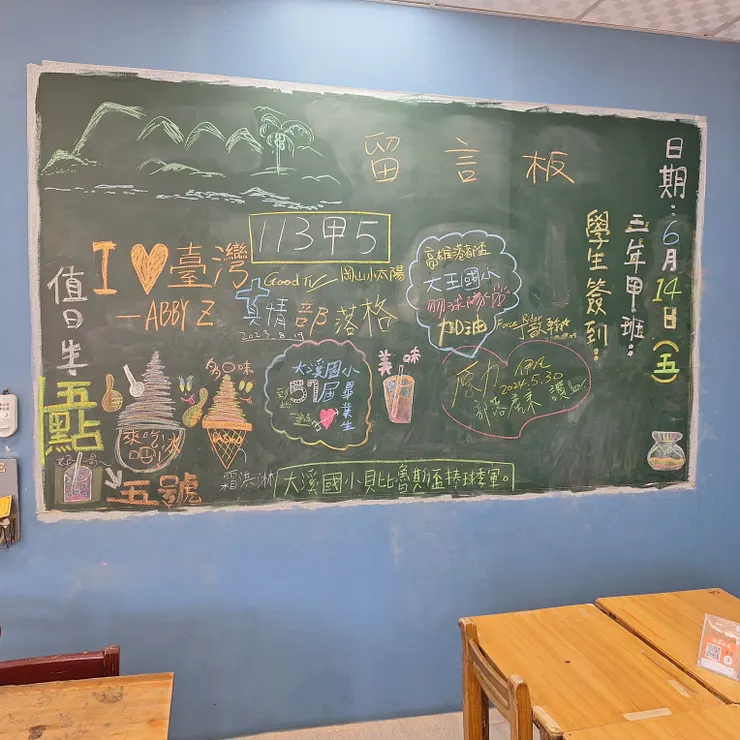 留言板
日期：6月14日(五)
三年甲班：
學生簽到：
113甲5
I ♥ 臺灣
— ABBY Z
Good TV
岡山小太陽
真情部落格
2023.8.19
高雄港都盃
大王國小
加油
Force Rider
原力
伊凡
2024.5.30
讚
值日生
五點
五號
來吃冰吧!
多口味
霜淇淋
大溪國小
51屆
畢業生
美味
大溪國小貝比魯斯盃棒球季軍。